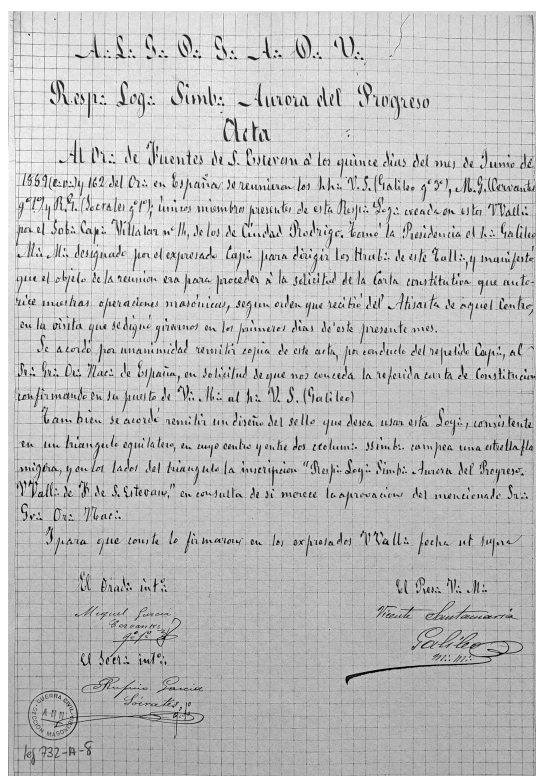 A∴ L∴ G∴ D∴ G∴ A∴ D∴ U∴
Resp∴ Log∴ Simb∴ Aurora del Progreso
Acta
Al Or∴ de Fuentes de S. Estevan á los quince dias del mes de Junio de
1889 (e∴v∴) y 162 del Or∴ en España se reunieron los hh∴ V. S. (Galileo gº 3º), M. G. (Cervantes
gº 1º) y R. G. (Socrates gº 1º); únicos miembros presentes de esta Resp∴ Log∴ creada en estos VVall∴
por el Sob∴ Cap∴ Villalar nº 14, de los de Ciudad Rodrigo. Tomó la Presidencia el h∴ Galileo
M∴ M∴ designado por el expresado Cap∴ para dirigir los Trab∴ de este Tall∴ y manifestó
que el objeto de la reunion era para proceder á la solicitud de la Carta constitutiva que auto-
rice nuestras operaciones masónicas, segun orden que recibió del Atisarta de aquel Centro,
en la visita que se dignó girarnos en los primeros dias de este presente mes.
Se acordó por unanimidad remitir copia de este acta, por conducto del repetido Cap∴, al
Sr∴ Gr∴ Or∴ Nac∴ de España, en solicitud de que nos conceda la referida carta de Constitucion
confirmando en su puesto de V∴ M∴ al h∴ V. S. (Galileo)
Tambien se acordó remitir un diseño del sello que desea usar esta Log∴, consistente
en un triangulo equilatero, en cuyo centro y entre dos ccolum∴ ssimb∴ campea una estrella fla
migera, y en los lados del triangulo la inscripcion "Resp∴ Log∴ Simb∴ Aurora del Progreso.
VVall∴ de F. de S. Estevan," en consulta de si merece la aprovacion del mencionado Sr∴
Gr∴ Or∴ Nac∴
I para que conste lo firmaron en los expresados VVall∴ fecha ut supra
El Orad∴ intº∴
El Pres∴ V∴ M∴
Miguel Garcia
Cervantes
gº 1º
Vicente Santamaria
Galileo
M∴ M∴
El Secr∴ intº∴
Rufino Garcia
Socrates
gº 1º
GUERRA CIVIL
SECCIÓN
MASONERÍA
leg 732-A-8